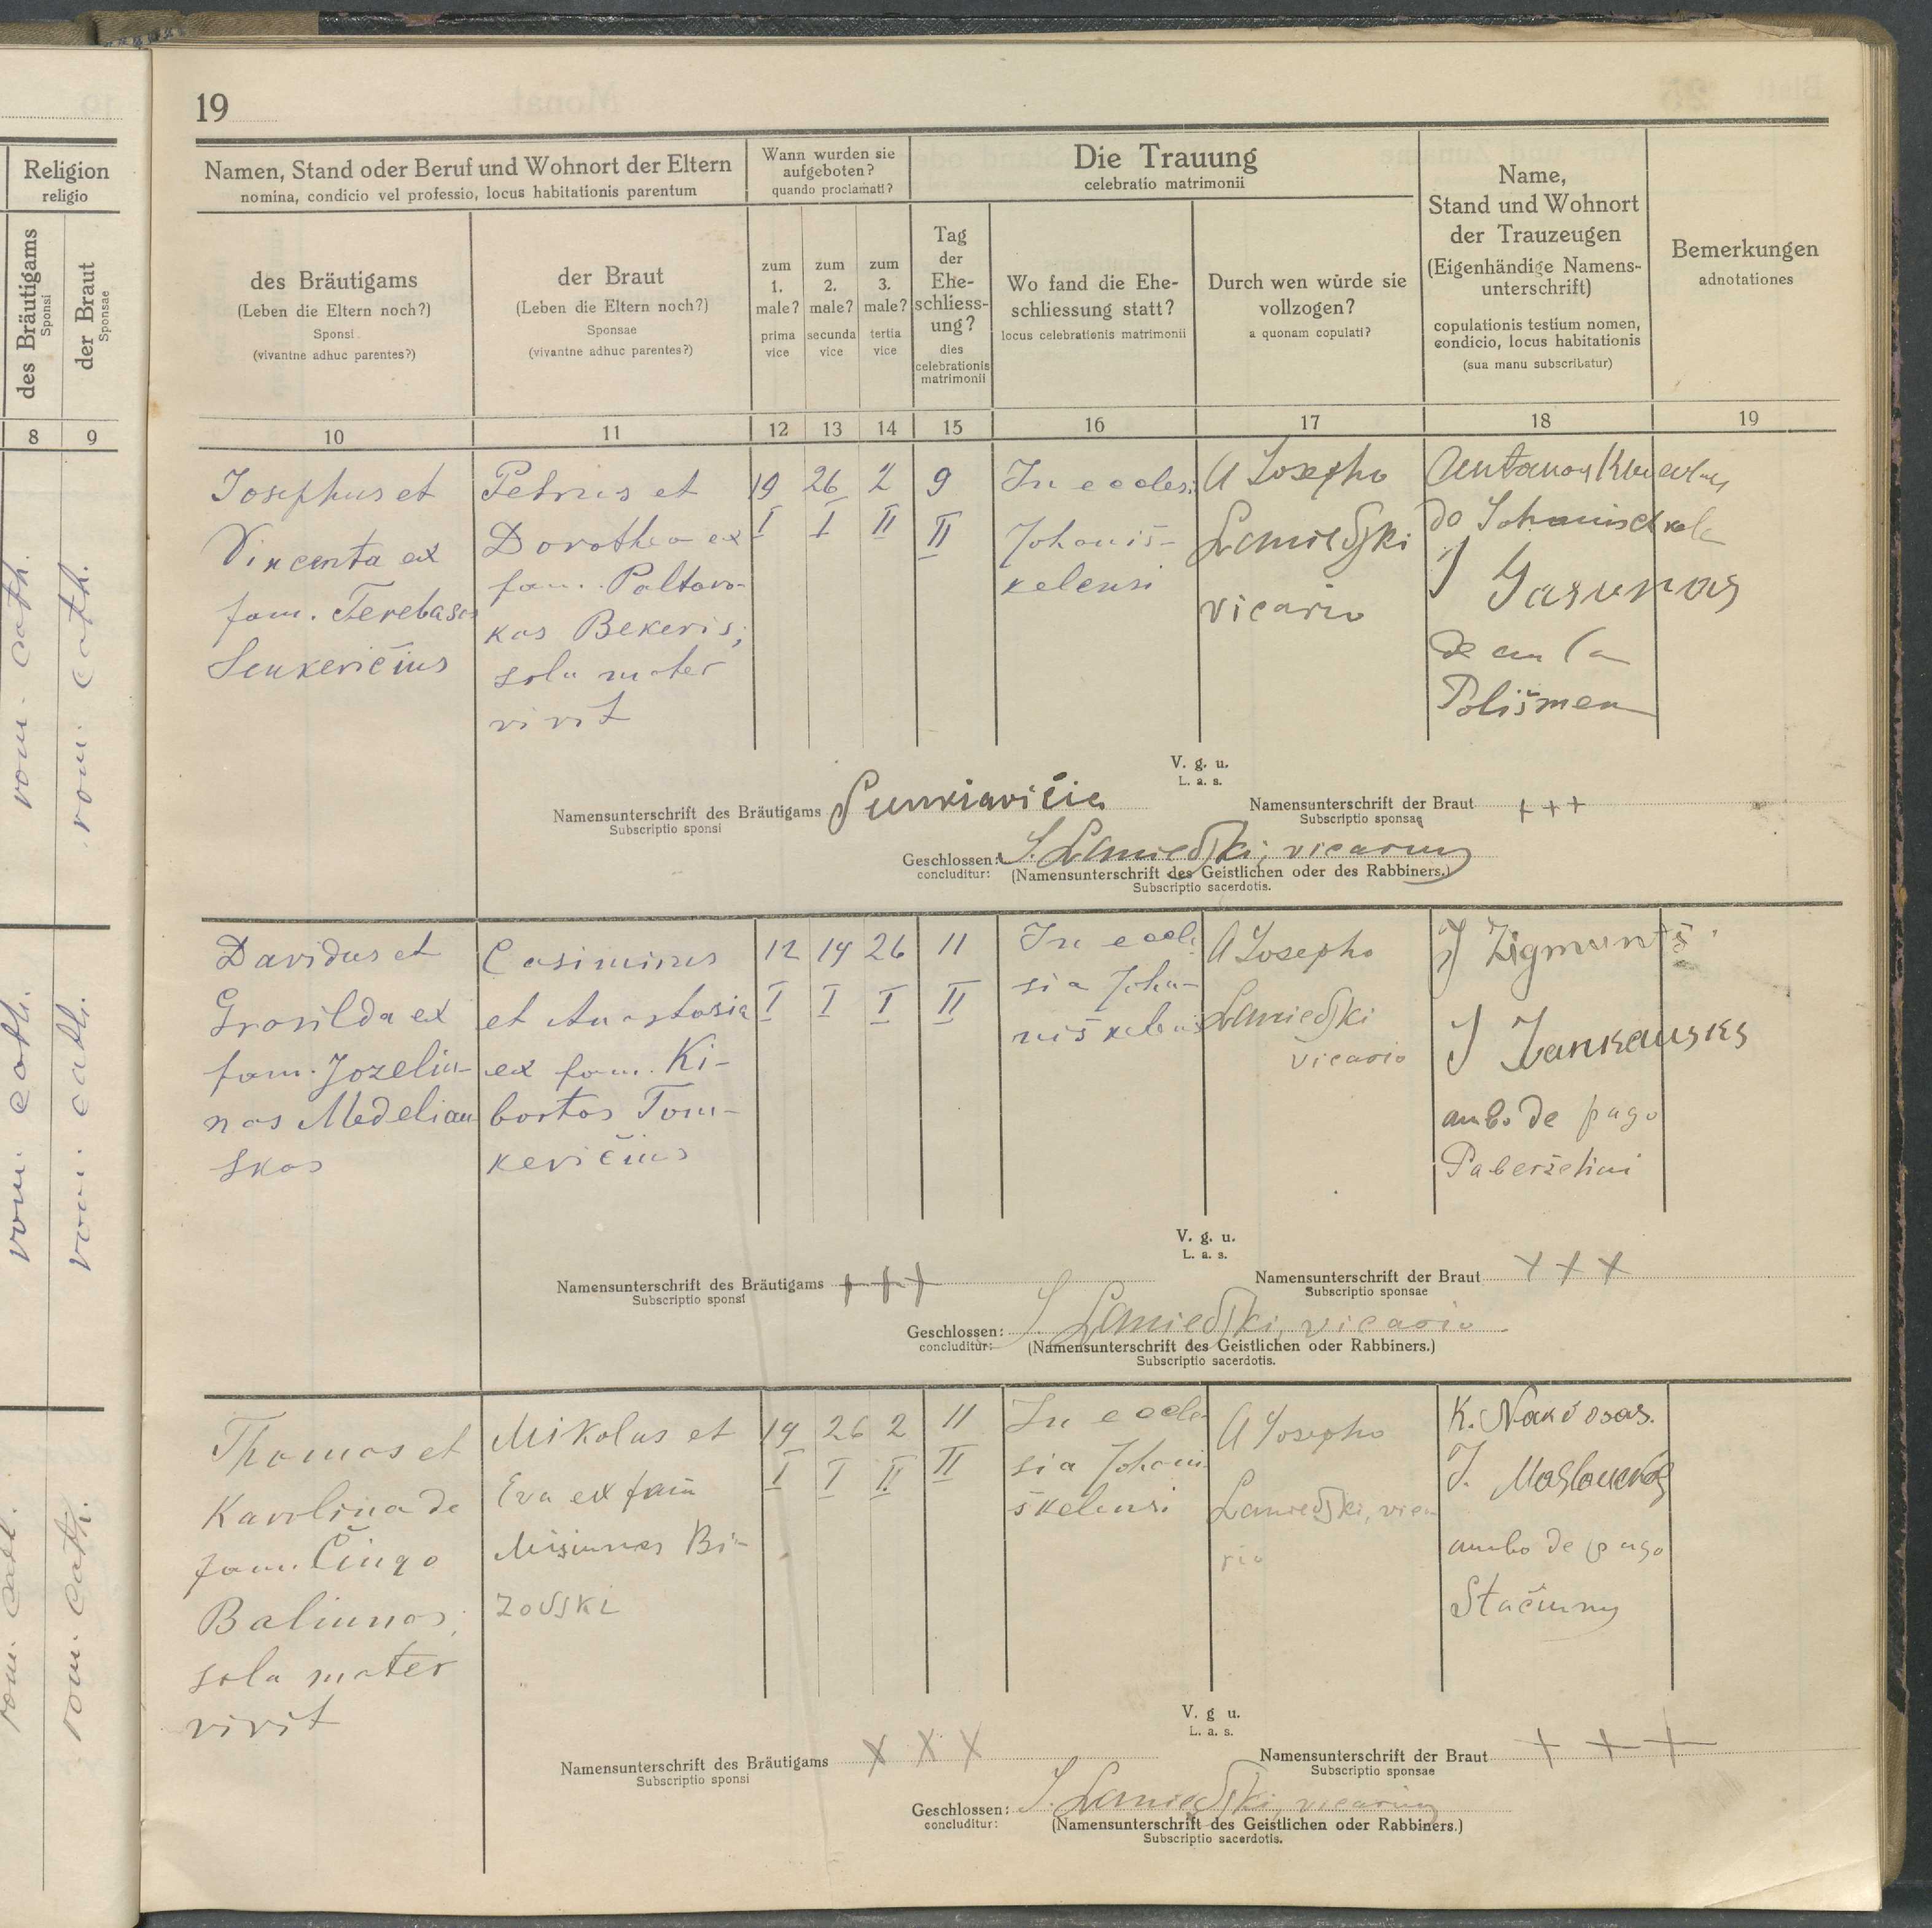 19
Religion
religio
des Bräutigams
Sponsi
der Braut
Sponsae
8
9
rom. cath.
rom. cath.
rom. cath.
rom. cath.
rom. cath.
rom. cath.
Namen, Stand oder Beruf und Wohnort der Eltern
nomina, condicio vel professio, locus habitationis parentum
des Bräutigams
(Leben die Eltern noch?)
Sponsi
(vivantne adhuc parentes?)
der Braut
(Leben die Eltern noch?)
Sponsae
(vivantne adhuc parentes?)
Wann wurden sie
aufgeboten?
quando proclamati?
zum
1.
male?
prima
vice
zum
2.
male?
secunda
vice
zum
3.
male?
tertia
vice
Die Trauung
celebratio matrimonii
Tag
der
Ehe-
schliess-
ung?
dies
celebrationis
matrimonii
Wo fand die Ehe-
schliessung statt?
locus celebrationis matrimonii
Durch wen würde sie
vollzogen?
a quonam copulati?
Name,
Stand und Wohnort
der Trauzeugen
(Eigenhändige Namens-
unterschrift)
copulationis testium nomen,
condicio, locus habitationis
(sua manu subscribatur)
Bemerkungen
adnotationes
10
11
12
13
14
15
16
17
18
19
Josephus et
Vincenta ex
fam. Terebasos
Senkevičius
Petrus et
Dorothea ex
fam. Paltaro-
kas Bekeris;
sola mater
vivit
19
I
26
I
2
II
9
II
In eccles.
Johaniš-
kelensi
A Josepho
Lamiedski
vicario
Antanas
de
J Jasunas
de
V. g. u.
L. a. s.
Namensunterschrift des Bräutigams
Subscriptio sponsi
Namensunterschrift der Braut +++
Subscriptio sponsae
Geschlossen: J. Lamiedski, vicarius
concluditur: (Namensunterschrift des Geistlichen oder des Rabbiners.)
Subscriptio sacerdotis.
Davidus et
Grasilda ex
fam. Jozeliu-
nas Medeliau-
skas
Casimirus
et Anastasia
ex fam. Ki-
bortos Tom-
kevičius
12
I
19
I
26
I
11
II
In eccle
sia Joha-
niškelensi
A Josepho
Lamiedski
vicario
J Zigmunts
J Jankausks
ambo de pago
V. g. u.
L. a. s.
Namensunterschrift des Bräutigams +++
Subscriptio sponsi
Namensunterschrift der Braut +++
Subscriptio sponsae
Geschlossen: J. Lamiedski, vicario
concluditur: (Namensunterschrift des Geistlichen oder Rabbiners.)
Subscriptio sacerdotis.
Thomas et
Karolina de
fam. Činga
Baliunas;
sola mater
vivit
Mikolas et
Eva ex fam
Misiunas Bi-
zovski
19
I
26
I
2
II
11
II
In eccle
sia Johani
škelensi
A Josepho
Lamiedski, vica
rio
K.
J.
ambo de pago
Stačiuny
V. g u.
L. a. s.
Namensunterschrift des Bräutigams x x x
Subscriptio sponsi
Namensunterschrift der Braut +++
Subscriptio sponsae
Geschlossen: J. Lamiedski, vicarius
concluditur: (Namensunterschrift des Geistlichen oder Rabbiners.)
Subscriptio sacerdotis.